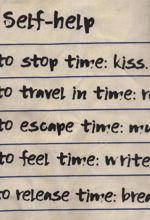 Self-help
to stop time: kiss.
to travel in time:
to escape time:
to feel time: write
to release time: